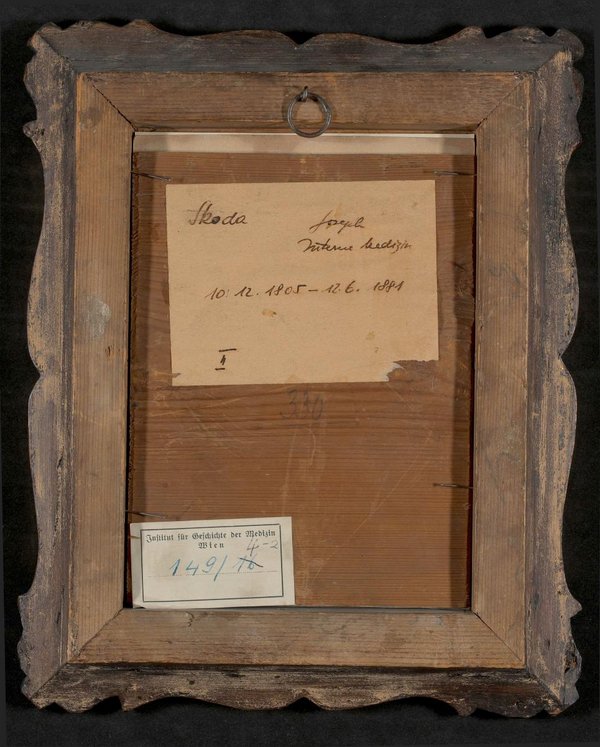 Skoda Joseph
Interne Medizin
10. 12. 1805 – 12. 6. 1881
330
Institut für Geschichte der Medizin
Wien
4-2
149/